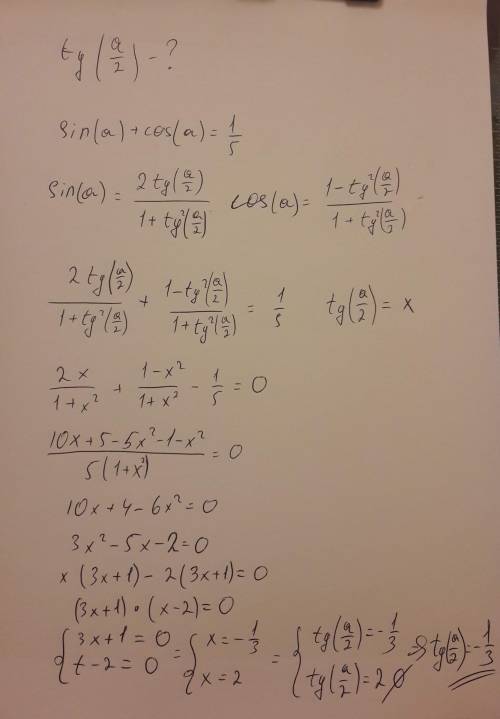 tg(a/2) - ?
sin(a) + cos(a) = 1/5
sin(a) = 2tg(a/2) / 1+tg²(a/2) cos(a) = 1-tg²(a/2) / 1+tg²(a/2)
2tg(a/2) / 1+tg²(a/2) + 1-tg²(a/2) / 1+tg²(a/2) = 1/5 tg(a/2) = x
2x / 1+x² + 1-x² / 1+x² - 1/5 = 0
10x+5-5x²-1-x² / 5(1+x²) = 0
10x+4-6x²=0
3x²-5x-2=0
x(3x+1)-2(3x+1)=0
(3x+1)·(x-2)=0
{ 3x+1=0 = { x=-1/3 = { tg(a/2)=-1/3 ⇒ tg(a/2)=-1/3
t-2=0 x=2 tg(a/2)=2 ∅